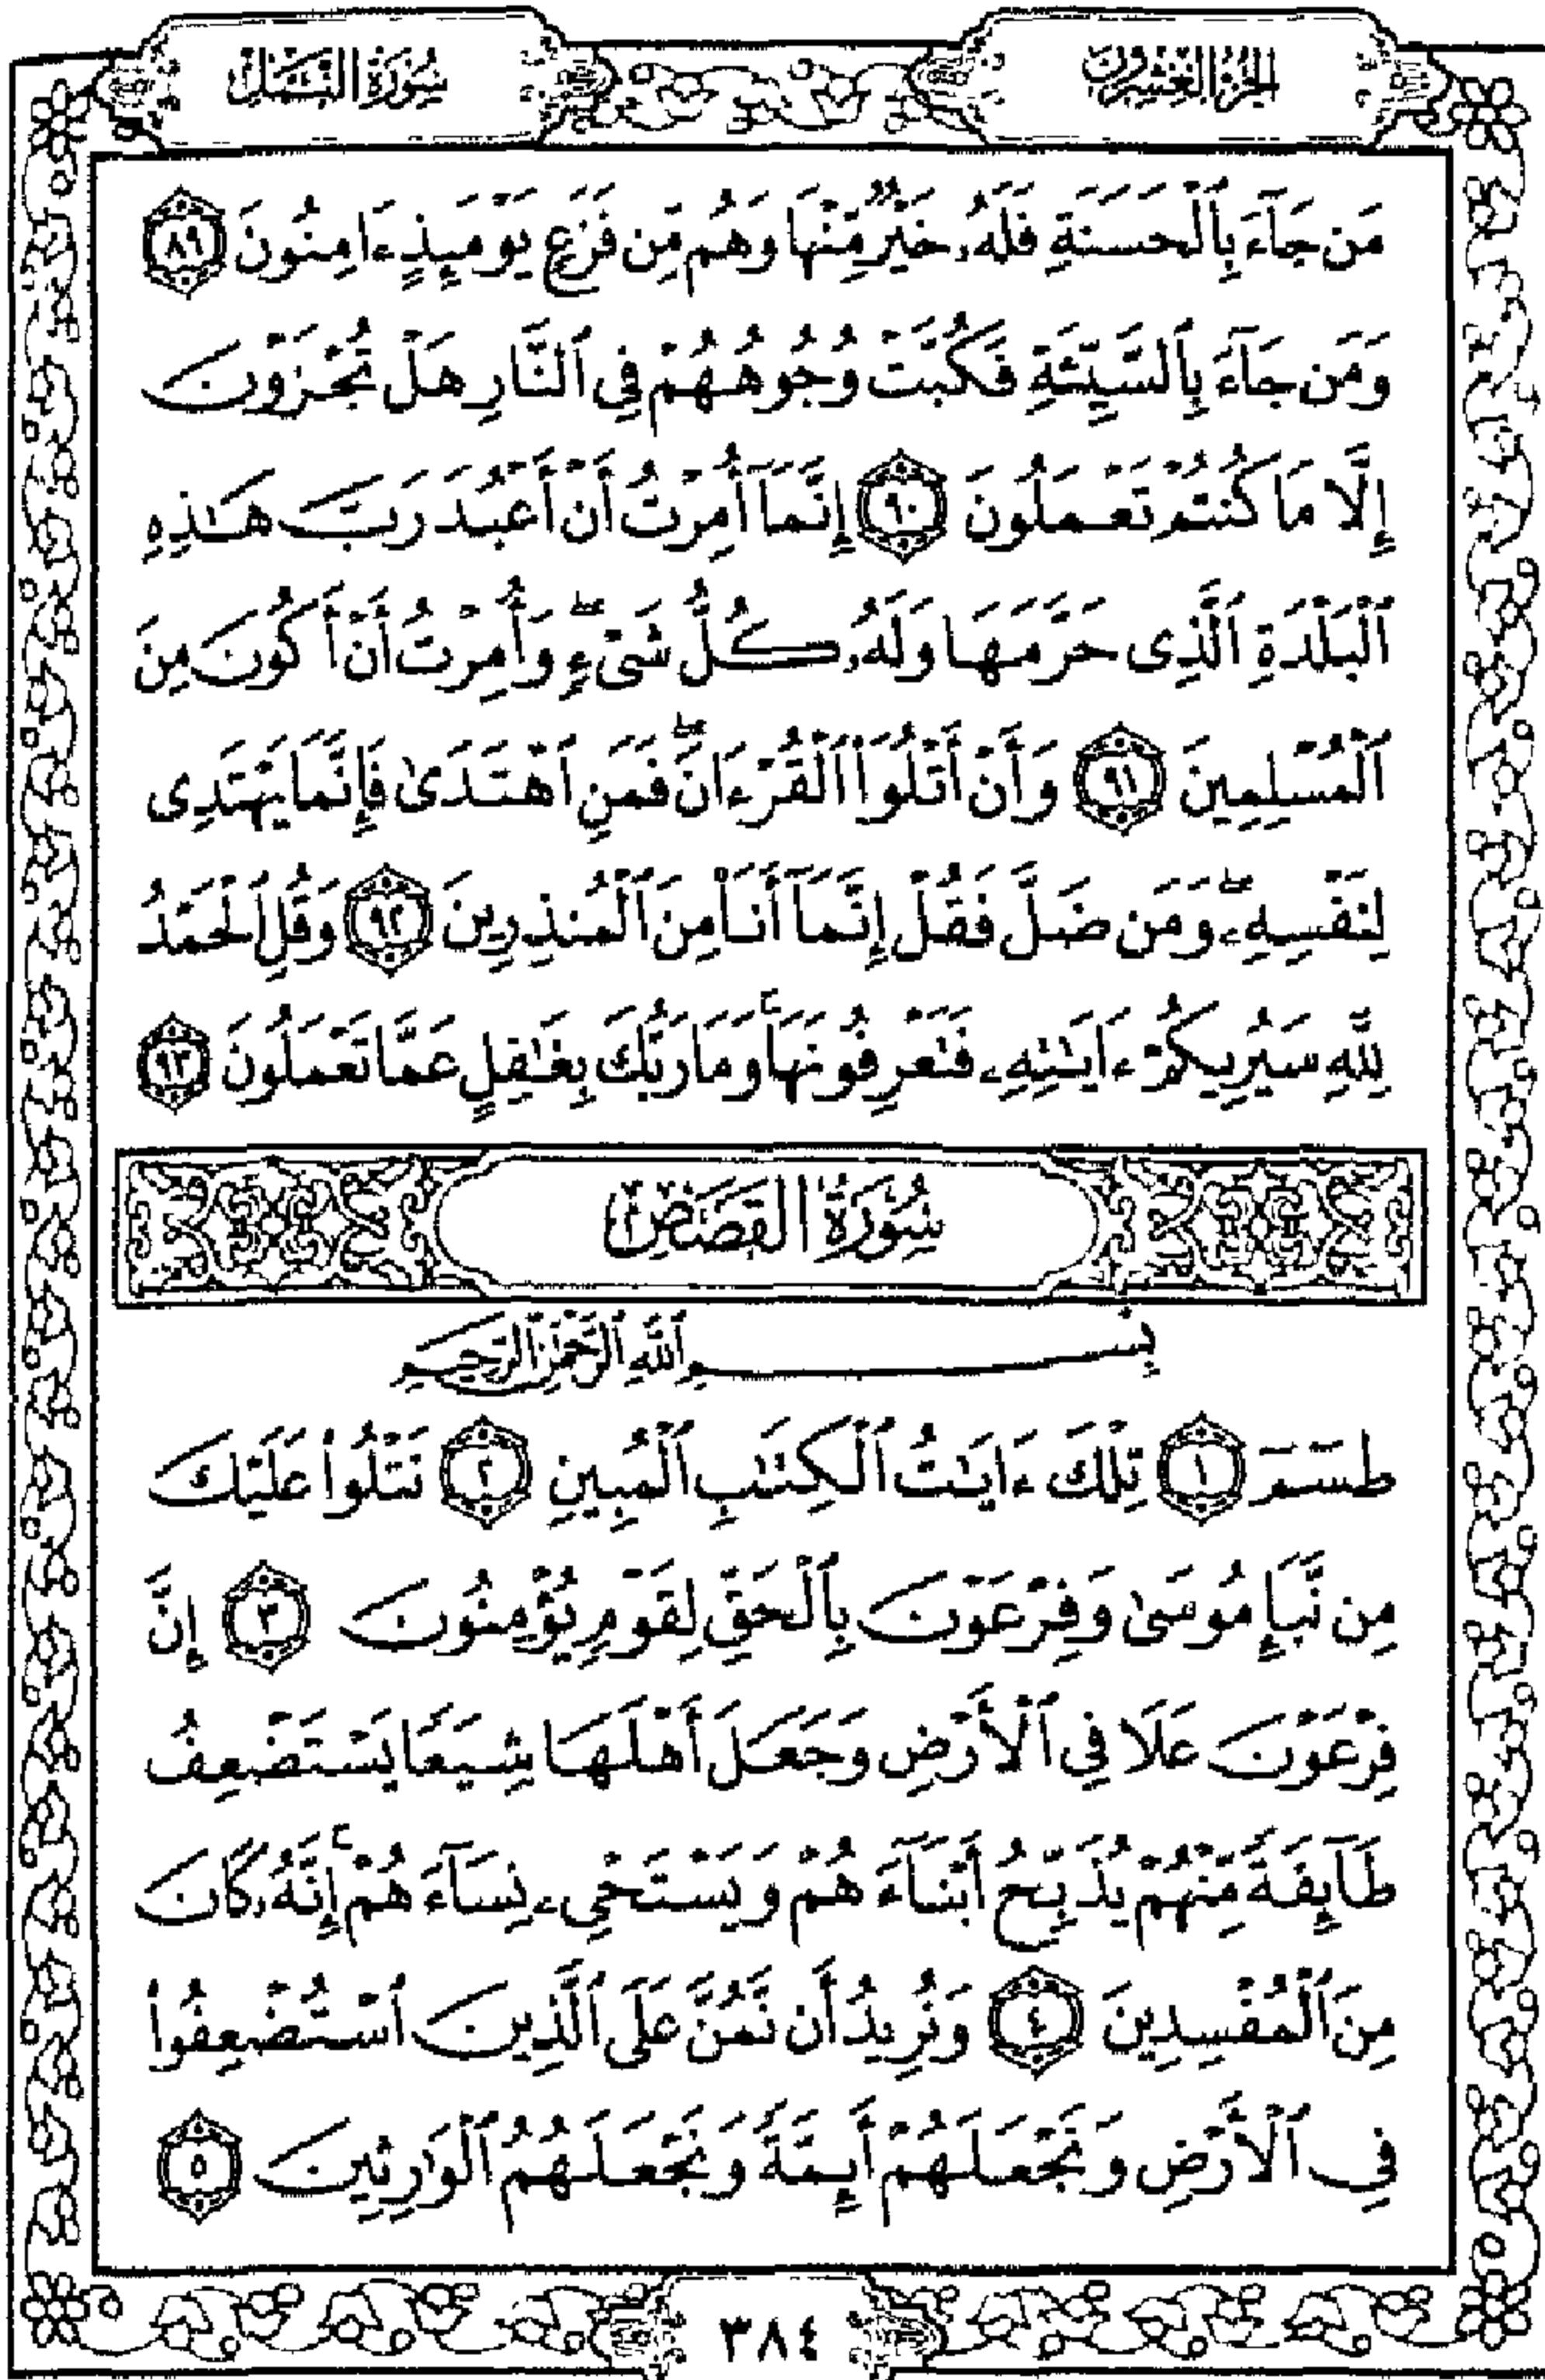 الجزء العشرون
سورة النمل
مَن جَآءَ بِٱلْحَسَنَةِ فَلَهُۥ خَيْرٌ مِّنْهَا وَهُم مِّن فَزَعٍ يَوْمَئِذٍ ءَامِنُونَ ٨٩
وَمَن جَآءَ بِٱلسَّيِّئَةِ فَكُبَّتْ وُجُوهُهُمْ فِى ٱلنَّارِ هَلْ تُجْزَوْنَ
إِلَّا مَا كُنتُمْ تَعْمَلُونَ ٩٠ إِنَّمَآ أُمِرْتُ أَنْ أَعْبُدَ رَبَّ هَٰذِهِ
ٱلْبَلْدَةِ ٱلَّذِى حَرَّمَهَا وَلَهُۥ كُلُّ شَىْءٍ ۖ وَأُمِرْتُ أَنْ أَكُونَ مِنَ
ٱلْمُسْلِمِينَ ٩١ وَأَنْ أَتْلُوَا۟ ٱلْقُرْءَانَ ۖ فَمَنِ ٱهْتَدَىٰ فَإِنَّمَا يَهْتَدِى
لِنَفْسِهِۦ ۖ وَمَن ضَلَّ فَقُلْ إِنَّمَآ أَنَا۠ مِنَ ٱلْمُنذِرِينَ ٩٢ وَقُلِ ٱلْحَمْدُ
لِلَّهِ سَيُرِيكُمْ ءَايَٰتِهِۦ فَتَعْرِفُونَهَا ۚ وَمَا رَبُّكَ بِغَٰفِلٍ عَمَّا تَعْمَلُونَ ٩٣
سُورَةُ القَصَصِ
بِسْمِ ٱللَّهِ ٱلرَّحْمَٰنِ ٱلرَّحِيمِ
طسٓمٓ ١ تِلْكَ ءَايَٰتُ ٱلْكِتَٰبِ ٱلْمُبِينِ ٢ نَتْلُوا۟ عَلَيْكَ
مِن نَّبَإِ مُوسَىٰ وَفِرْعَوْنَ بِٱلْحَقِّ لِقَوْمٍ يُؤْمِنُونَ ٣ إِنَّ
فِرْعَوْنَ عَلَا فِى ٱلْأَرْضِ وَجَعَلَ أَهْلَهَا شِيَعًا يَسْتَضْعِفُ
طَآئِفَةً مِّنْهُمْ يُذَبِّحُ أَبْنَآءَهُمْ وَيَسْتَحْىِۦ نِسَآءَهُمْ ۚ إِنَّهُۥ كَانَ
مِنَ ٱلْمُفْسِدِينَ ٤ وَنُرِيدُ أَن نَّمُنَّ عَلَى ٱلَّذِينَ ٱسْتُضْعِفُوا۟
فِى ٱلْأَرْضِ وَنَجْعَلَهُمْ أَئِمَّةً وَنَجْعَلَهُمُ ٱلْوَٰرِثِينَ ٥
٣٨٤